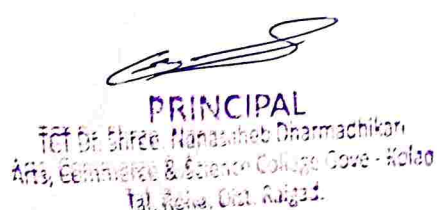 PRINCIPAL
TCT Dr. Shree. Nanasaheb Dharmadhikari
Arts, Commerce & Science College Gove - Kolad
Tal. Roha, Dist. Raigad.